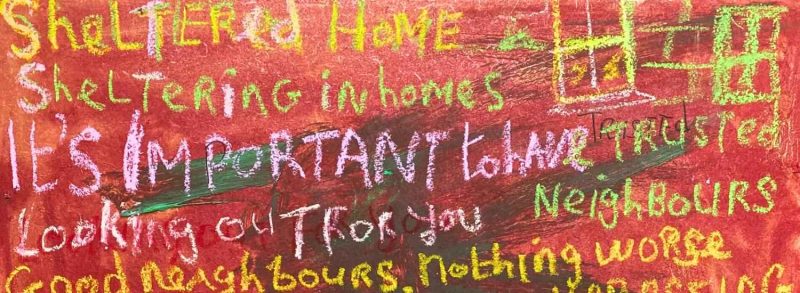 SheLTERed HOME
SheLTERING in homes
IT'S IMPORTANT to have TRUSTED
NeighBOURS
Looking OUT FOR YOU
Good neighbours, nothing worse